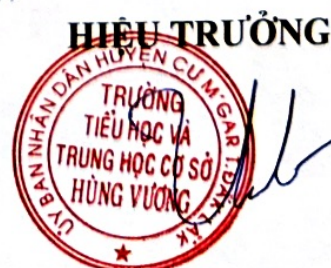 HIỆU TRƯỞNG
ỦY BAN NHÂN DÂN HUYỆN CƯ M'GAR T.ĐĂK LĂK
TRƯỜNG
TIỂU HỌC VÀ
TRUNG HỌC CƠ SỞ
HÙNG VƯƠNG